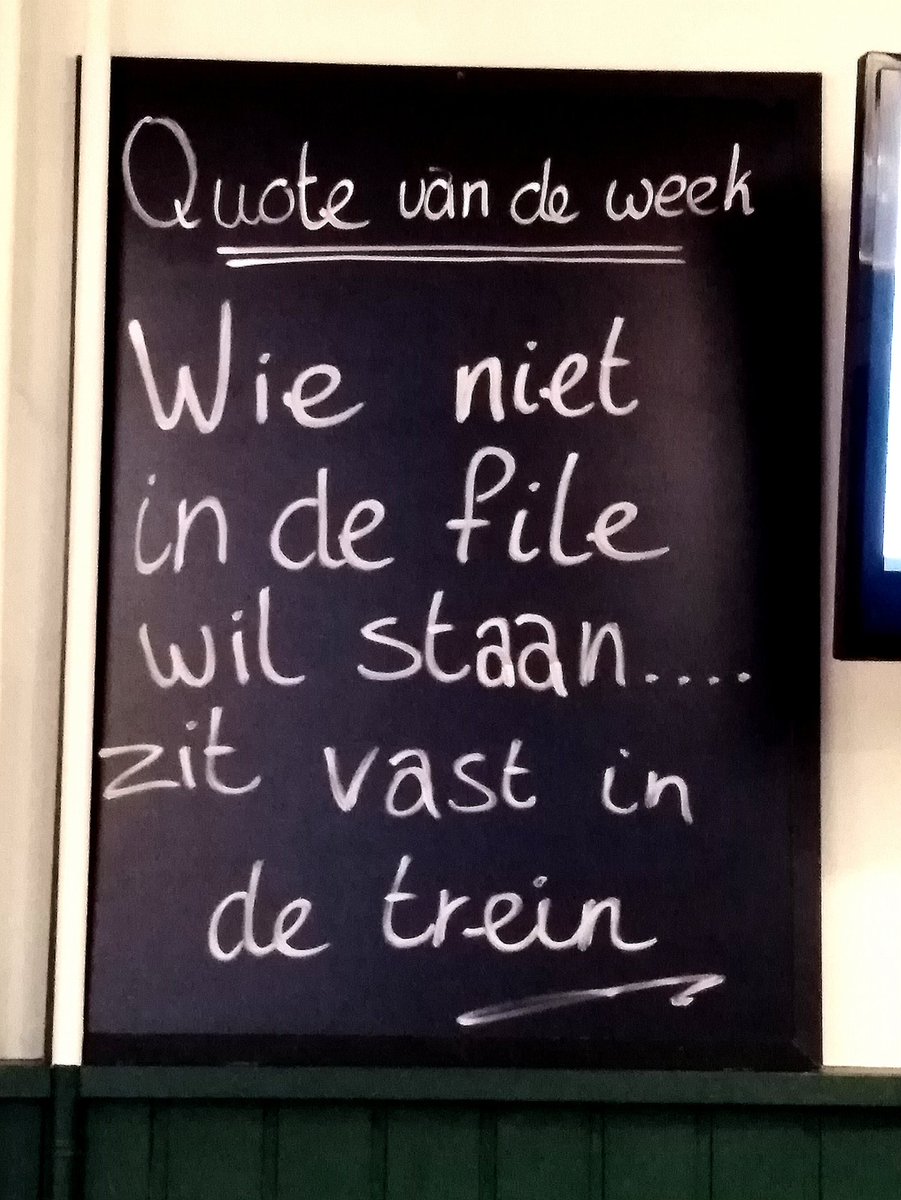 Quote van de week
Wie niet
in de file
wil staan....
zit vast in
de trein